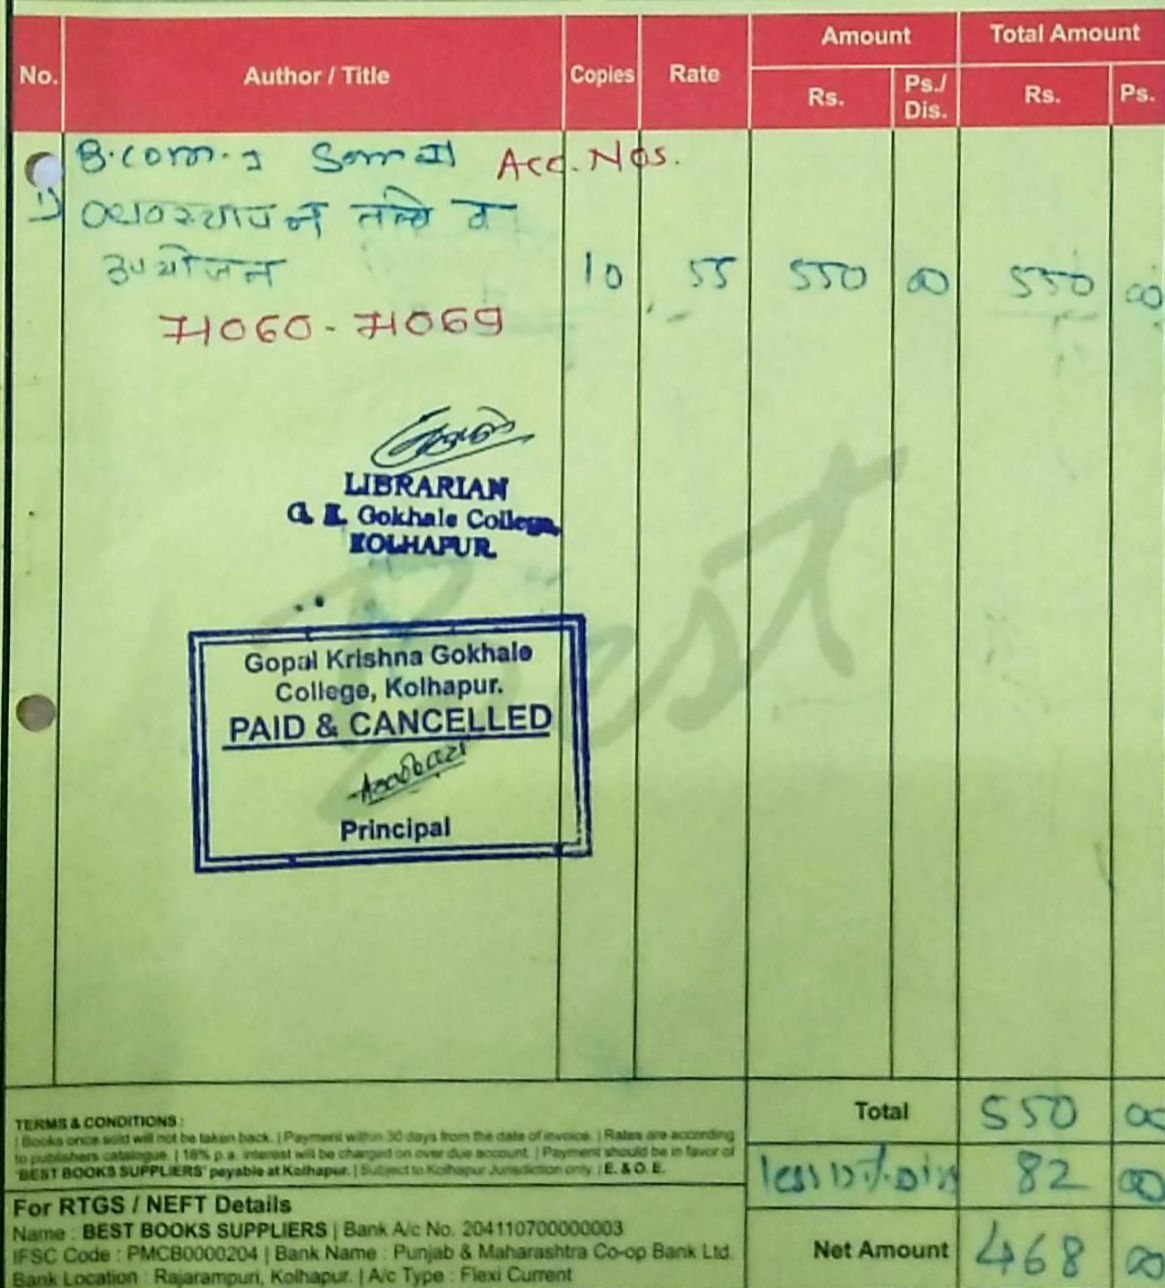 No. Author / Title Copies Rate Amount Total Amount
Rs. Ps./ Dis. Rs. Ps.
B.com.I Sem II Acc. Nos.
1) व्यवस्थापन तत्वे व
उपयोजन 10 55 550 00 550 00
71060 - 71069
LIBRARIAN
G. K. Gokhale College,
KOLHAPUR.
Best
Gopal Krishna Gokhale
College, Kolhapur.
PAID & CANCELLED
Principal
Total 550 00
TERMS & CONDITIONS :
| Books once sold will not be taken back. | Payment within 30 days from the date of invoice. | Rates are according
to publishers catalogue. | 18% p.a. interest will be charged on over due account. | Payment should be in favor of
'BEST BOOKS SUPPLIERS' payable at Kolhapur. | Subject to Kolhapur Jurisdiction only. | E. & O. E.
less 15% Dis 82 00
For RTGS / NEFT Details
Name : BEST BOOKS SUPPLIERS | Bank A/c No. 204110700000003
IFSC Code : PMCB0000204 | Bank Name : Punjab & Maharashtra Co-op Bank Ltd.
Bank Location : Rajarampuri, Kolhapur. | A/c Type : Flexi Current
Net Amount 468 00